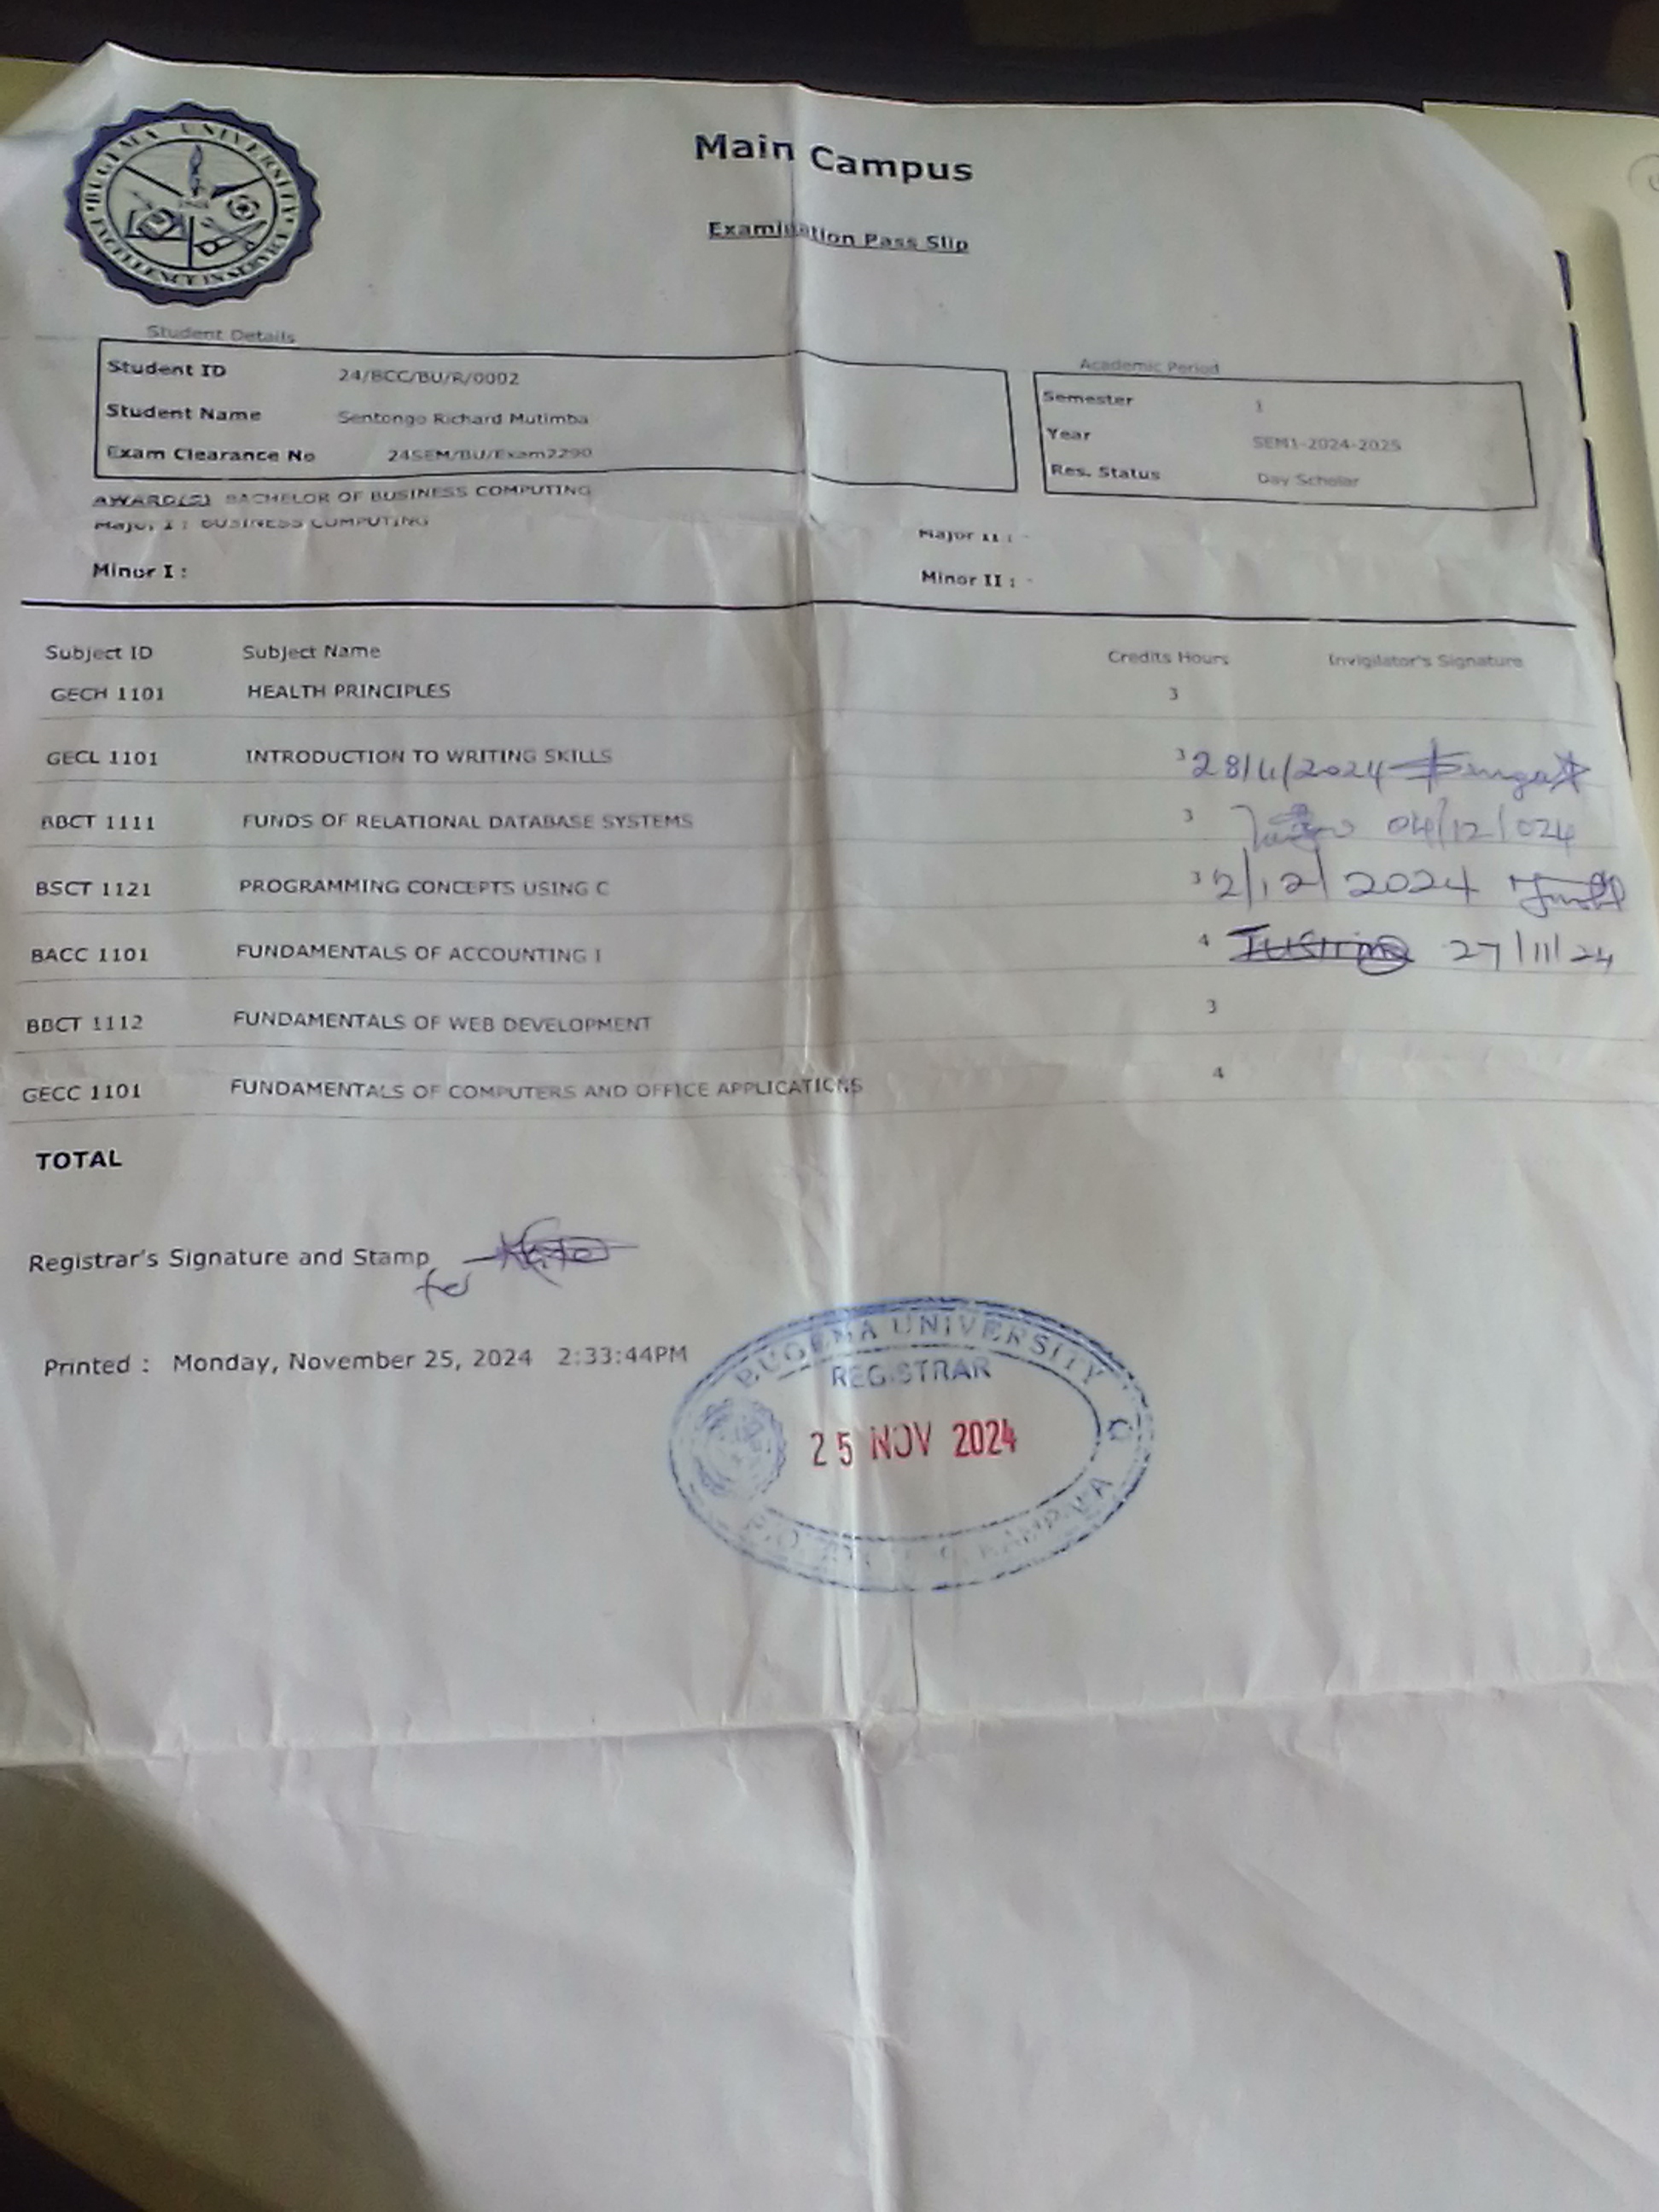 BUGEMA UNIVERSITY
EXCELLENCE IN SERVICE
Main Campus
Examination Pass Slip
Student Details
Student ID 24/BCC/BU/R/0002
Student Name Sentongo Richard Mutimba
Exam Clearance No 24SEM/BU/Exam2290
Academic Period
Semester 1
Year SEM1-2024-2025
Res. Status Day Scholar
AWARD(S) BACHELOR OF BUSINESS COMPUTING
Major I : BUSINESS COMPUTING Major II : -
Minor I : Minor II : -
Subject ID Subject Name Credits Hours Invigilator's Signature
GECH 1101 HEALTH PRINCIPLES 3
GECL 1101 INTRODUCTION TO WRITING SKILLS 3 28/11/2024
BBCT 1111 FUNDS OF RELATIONAL DATABASE SYSTEMS 3 04/12/024
BSCT 1121 PROGRAMMING CONCEPTS USING C 3 2/12/2024
BACC 1101 FUNDAMENTALS OF ACCOUNTING I 4 27/11/24
BBCT 1112 FUNDAMENTALS OF WEB DEVELOPMENT 3
GECC 1101 FUNDAMENTALS OF COMPUTERS AND OFFICE APPLICATIONS 4
TOTAL
Registrar's Signature and Stamp
for
Printed : Monday, November 25, 2024 2:33:44PM
BUGEMA UNIVERSITY
REGISTRAR
25 NOV 2024
KAMPALA